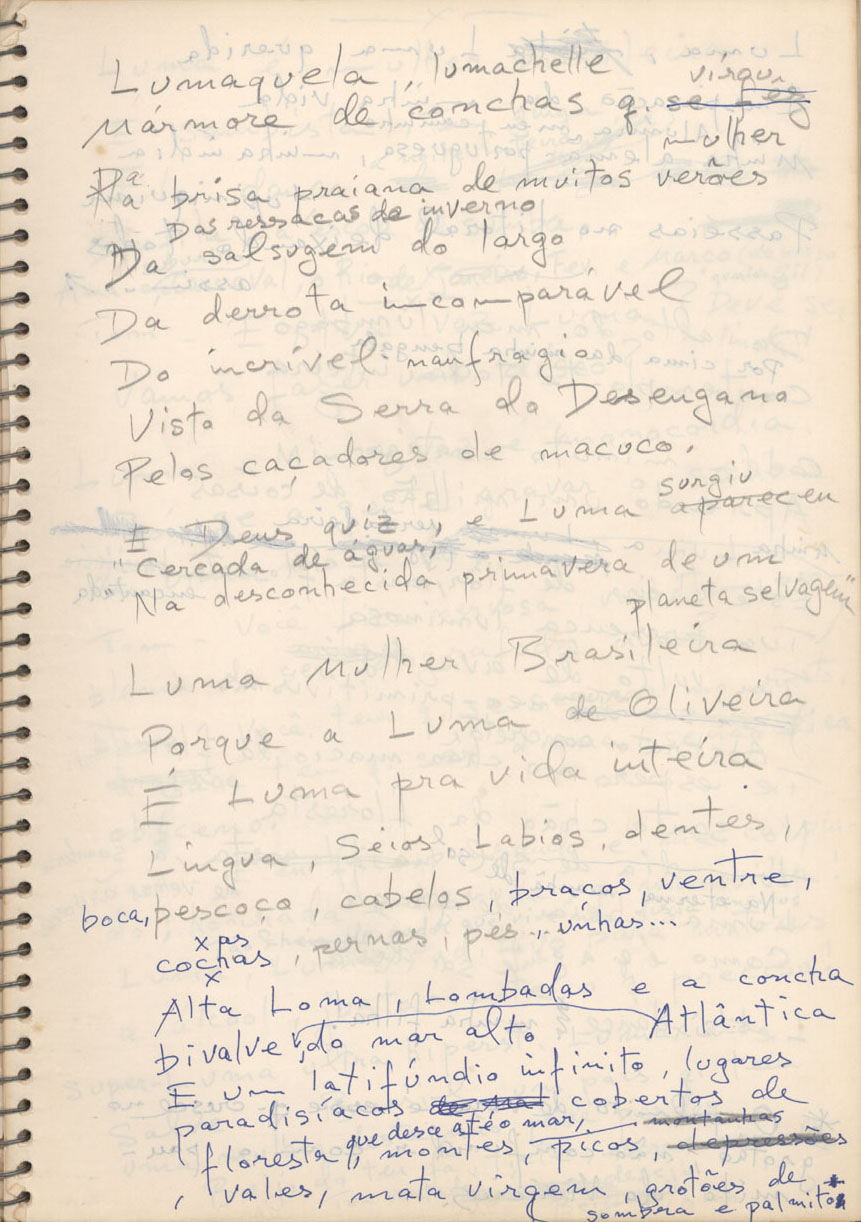 Lumaquela, lumachelle
Mármore de conchas q. se fez virou
mulher
Da brisa praiana de muitos verões
Das ressacas de inverno
Da salsugem do largo
Da derrota incomparável
Do incrível naufragio
Visto da Serra do Desengano
Pelos caçadores de macuco.
E Deus quiz, e Luma apareceu surgiu
"Cercada de águas,
Na desconhecida primavera de um
planeta selvagem"
Luma Mulher Brasileira
Porque a Luma de Oliveira
É Luma pra vida inteira
Lingua, Seios, Labios, dentes,
boca, pescoço, cabelos, braços, ventre,
coxas, pernas, pés, unhas...
Alta Loma, Lombadas e a concha
bivalve, do mar alto Atlântica
E um latifúndio infinito, lugares
paradisíacos de mat cobertos de
floresta, que desce até o mar, montes, picos, montanhas depressões
, vales, mata virgem, grotões de
sombra e palmito